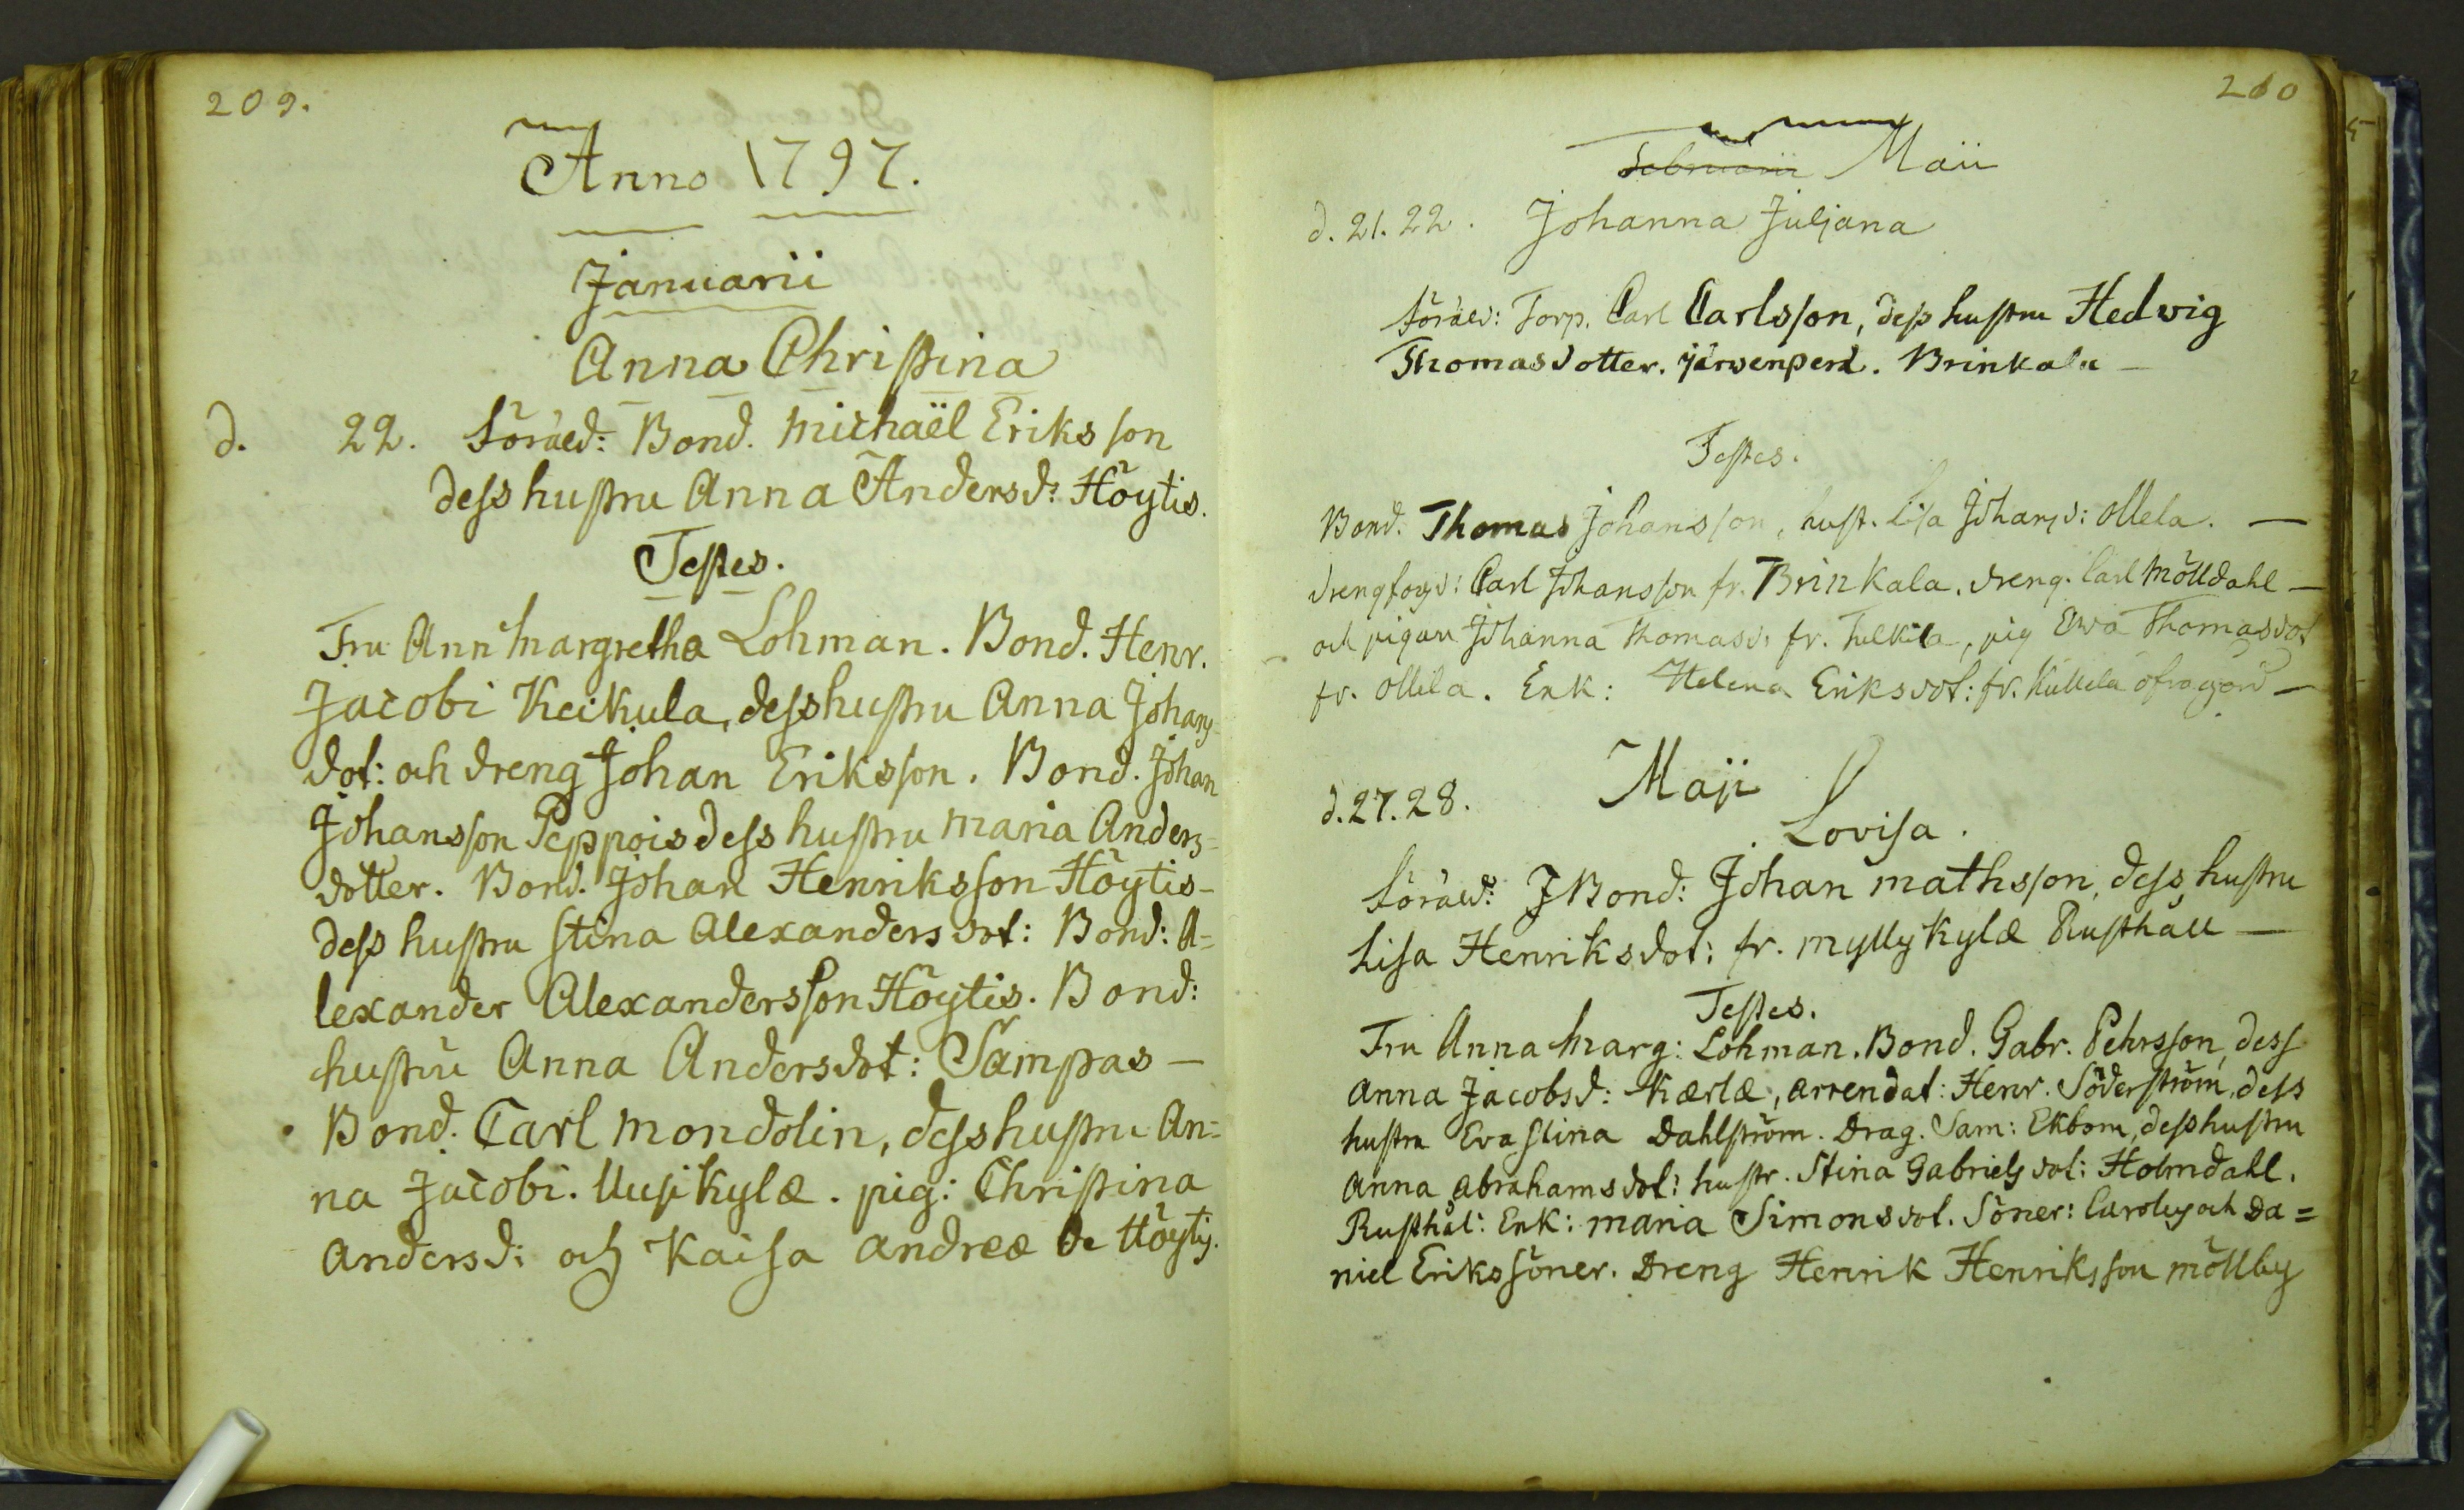 209.
Anno 1797.
Januarii
Anna Christina
d. 22. Föräld: Bond. Michaël Eriksson
dess hustru Anna Andersd: Höytis.
Testes.
Fru Ann Margretha Lohman. Bond. Henr.
Jacobi Keikula, dess hustru Anna Johans
dot: och dreng Johan Eriksson. Bond. Johan
Johansson Peppois dess hustru Maria Anders=
dotter. Bond. Johan Henriksson Höytis-
dess hustru Stina Alexandersdot: Bond: A=
lexander Alexandersson Höytis. Bond:
hustru Anna Andersdot: Sampas —
Bond. Carl Mondolin, dess hustru An=
na Jacobi. Uusikylæ. pig: Christina
Andersd: och Kaisa Andreæ de Höytis.
210
Februarii Maii
d. 21. 22. Johanna Juljana
Föräld: Torp. Carl Carlsson, dess hustru Hedvig
Thomasdotter. Brinkala —
Testes.
Bond. Thomas Johansson, hust. Lisa Johansd: Ollela. —
drengfogd: Carl Johansson fr. Brinkala. dreng. Carl Mölldahl —
och pigan Johanna Thomasd: fr. pig Ewa Thomasdot
fr. Ollila. Enk: Helena Eriksdot: fr. Kullela öfragård —
d. 27. 28. Maji
Lovisa.
Föräld: Bond: Johan Mathsson, dess hustru
Lisa Henriksdot: fr. Myllykylæ Rusthåll —
Testes.
Fru Anna Marg: Lohman. Bond. Gabr. Pehrsson, dess
Anna Jacobsd: Kærlæ, arrendat: Henr. Söderström, dess
hustru Eva Stina Dahlström. Drag. Sam: Ekbom, dess hustru
Anna Abrahamsdot: hustr. Stina Gabrielsdot: Holmdahl.
Rusthål: Enk: Maria Simonsdot. Söner: Carolus och Da=
niel Erikssöner. Dreng Henrik Henriksson Möllby